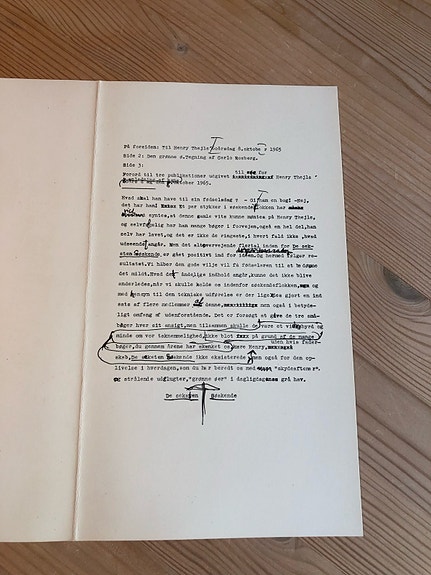 På forsiden: Til Henry Thejls fødselsdag 8.oktober 1965
Side 2: Den grønne ø.Tegning af Carlo Rosberg.
Side 3:
Forord til tre publikationer udgivet til af Henry Thejls'
oktober 1965.
Hvad skal han have til sin fødselsdag ? - Giv ham en bog! -Nej,
det har han! xxxxx Et par stykker i søskendeflokken har
syntes, at denne gamle vits kunne møntes på Henry Thejls,
og selvfølgelig har han mange bøger i forvejen,også en hel del,han
selv har lavet,og det er ikke de ringeste,i hvert fald ikke ,hvad
udseendet angår. Men det alt overvejende flertal inden for De søk-
sten Søskende,er gået positivt ind for ideen.Og hermed følger re-
sultatet.Vi håber den gode vilje vil få fødselaren til at bedømme
det mildt.Hvad det åndelige indhold angår,kunne det ikke blive
anderledes,når vi skulle holde os indenfor søskendeflokken, og
med hensyn til den tekniske udførelse er der ligeledes gjort en ind
sats af flere medlemmer af denne, men også i betyde-
ligt omfang af udenforstående. Det er forsøgt at give de tre små-
bøger hver sit ansigt,men tilsammen skulle de være et vidnesbyrd og
minde om vor taknemmelighed,ikke blot xxxx på grund af de mange
bøger,du gennem årene har skænket os,kære Henry, uden hvis fader-
skab,De seksten Søskende ikke eksisterede, men også for den op-
livelse i hverdagen,som du har beredt os med "skydeøftem r".
og strålende udflugter,"grønne øer" i dagligdagens grå hav.
De seksten Søskende